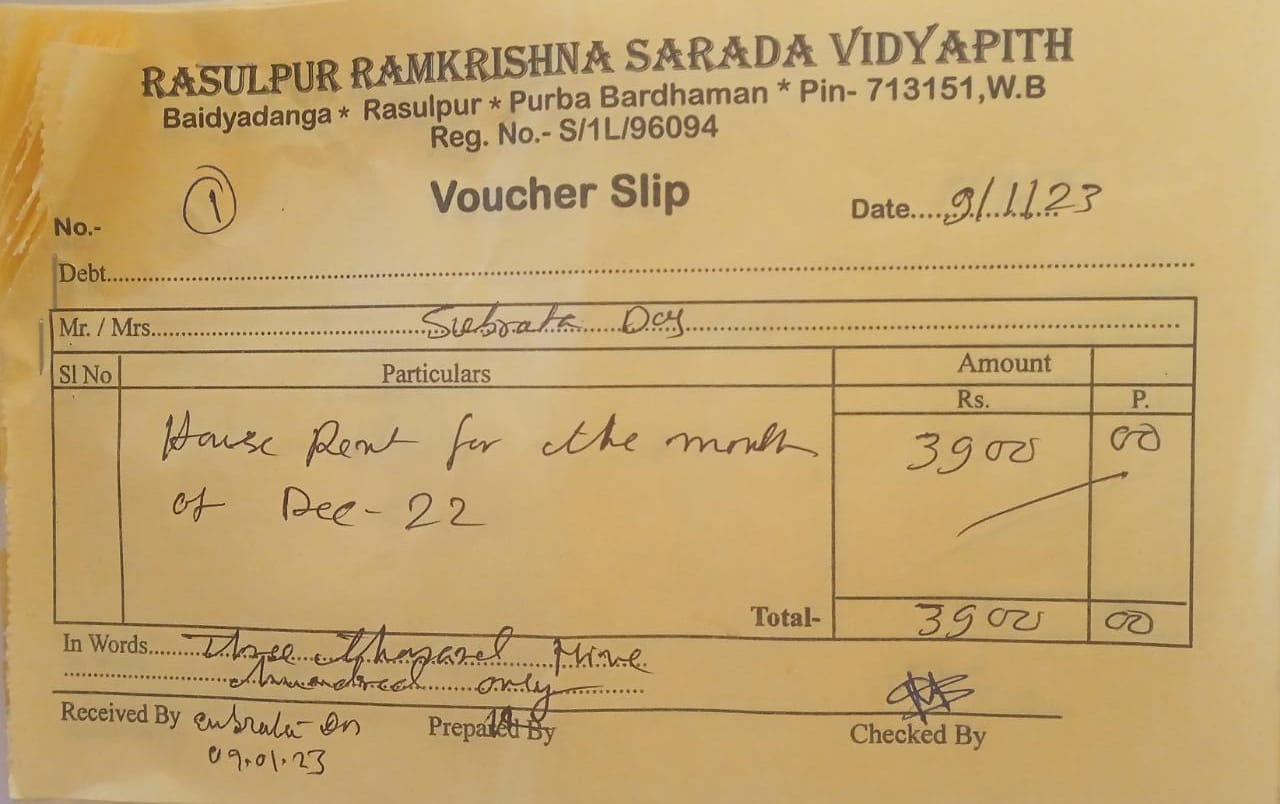 RASULPUR RAMKRISHNA SARADA VIDYAPITH
Baidyadanga * Rasulpur * Purba Bardhaman * Pin- 713151,W.B
Reg. No.- S/1L/96094
Voucher Slip
No.- 1
Date....9/1/23
Debt
Mr. / Mrs. Subrata Dey
Sl No Particulars Amount
Rs. P.
House Rent for the month 3900 00
of Dec-22
Total- 3900 00
In Words Three thousand Nine
hundred only
Received By Prepared By Checked By
09.01.23